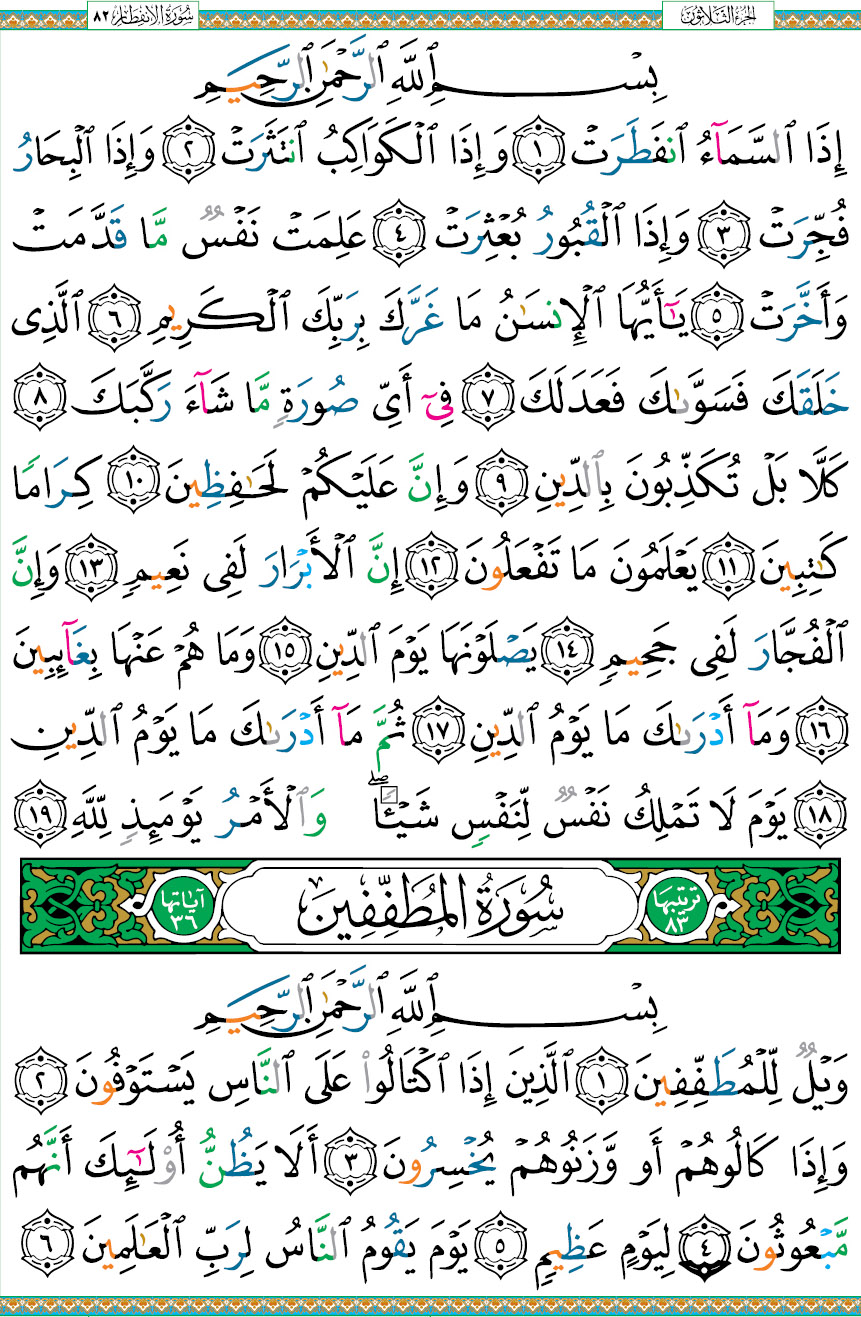 الجزء الثلاثون
سورة الانفطار ٨٢
بِسْمِ ٱللَّهِ ٱلرَّحْمَٰنِ ٱلرَّحِيمِ
إِذَا ٱلسَّمَآءُ ٱنفَطَرَتْ ١ وَإِذَا ٱلْكَوَاكِبُ ٱنتَثَرَتْ ٢ وَإِذَا ٱلْبِحَارُ
فُجِّرَتْ ٣ وَإِذَا ٱلْقُبُورُ بُعْثِرَتْ ٤ عَلِمَتْ نَفْسٌ مَّا قَدَّمَتْ
وَأَخَّرَتْ ٥ يَٰٓأَيُّهَا ٱلْإِنسَٰنُ مَا غَرَّكَ بِرَبِّكَ ٱلْكَرِيمِ ٦ ٱلَّذِى
خَلَقَكَ فَسَوَّىٰكَ فَعَدَلَكَ ٧ فِىٓ أَىِّ صُورَةٍ مَّا شَآءَ رَكَّبَكَ ٨
كَلَّا بَلْ تُكَذِّبُونَ بِٱلدِّينِ ٩ وَإِنَّ عَلَيْكُمْ لَحَٰفِظِينَ ١٠ كِرَامًا
كَٰتِبِينَ ١١ يَعْلَمُونَ مَا تَفْعَلُونَ ١٢ إِنَّ ٱلْأَبْرَارَ لَفِى نَعِيمٍ ١٣ وَإِنَّ
ٱلْفُجَّارَ لَفِى جَحِيمٍ ١٤ يَصْلَوْنَهَا يَوْمَ ٱلدِّينِ ١٥ وَمَا هُمْ عَنْهَا بِغَآئِبِينَ
١٦ وَمَآ أَدْرَىٰكَ مَا يَوْمُ ٱلدِّينِ ١٧ ثُمَّ مَآ أَدْرَىٰكَ مَا يَوْمُ ٱلدِّينِ
١٨ يَوْمَ لَا تَمْلِكُ نَفْسٌ لِّنَفْسٍ شَيْـًٔا ۖ وَٱلْأَمْرُ يَوْمَئِذٍ لِّلَّهِ ١٩
ترتيبها ٨٣ سورة المطففين آياتها ٣٦
بِسْمِ ٱللَّهِ ٱلرَّحْمَٰنِ ٱلرَّحِيمِ
وَيْلٌ لِّلْمُطَفِّفِينَ ١ ٱلَّذِينَ إِذَا ٱكْتَالُوا۟ عَلَى ٱلنَّاسِ يَسْتَوْفُونَ ٢
وَإِذَا كَالُوهُمْ أَو وَّزَنُوهُمْ يُخْسِرُونَ ٣ أَلَا يَظُنُّ أُو۟لَٰٓئِكَ أَنَّهُم
مَّبْعُوثُونَ ٤ لِيَوْمٍ عَظِيمٍ ٥ يَوْمَ يَقُومُ ٱلنَّاسُ لِرَبِّ ٱلْعَٰلَمِينَ ٦